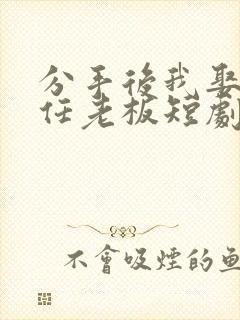 分手後我娶
任老板短劇
不會吸煙的魚